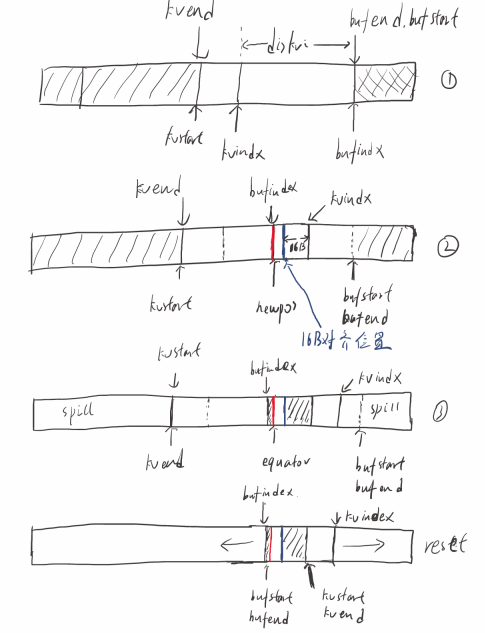 kvend
bufend, bufstart
distkvi
①
kvstart
kvindx
bufindx
kvend
bufindex
kvindx
16B
②
kvstart
newpos
bufstart
bufend
16B对齐位置
kvstart
bufindex
kvindx
spill
spill
③
kvend
equator
bufstart
bufend
bufindex
kvindex
reset
bufstart
bufend
kvstart
kvend